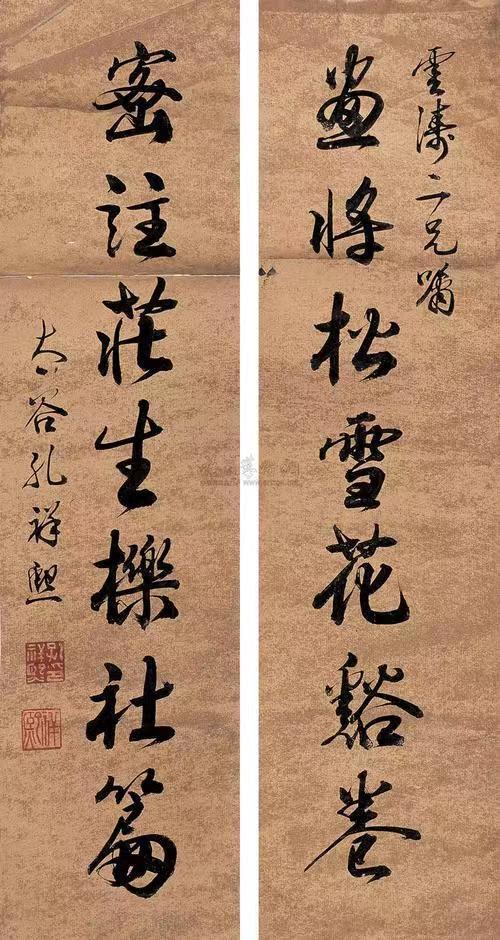 雲濤二兄囑
畫將松雪花谿卷
密註莊生櫟社篇
太谷孔祥熙